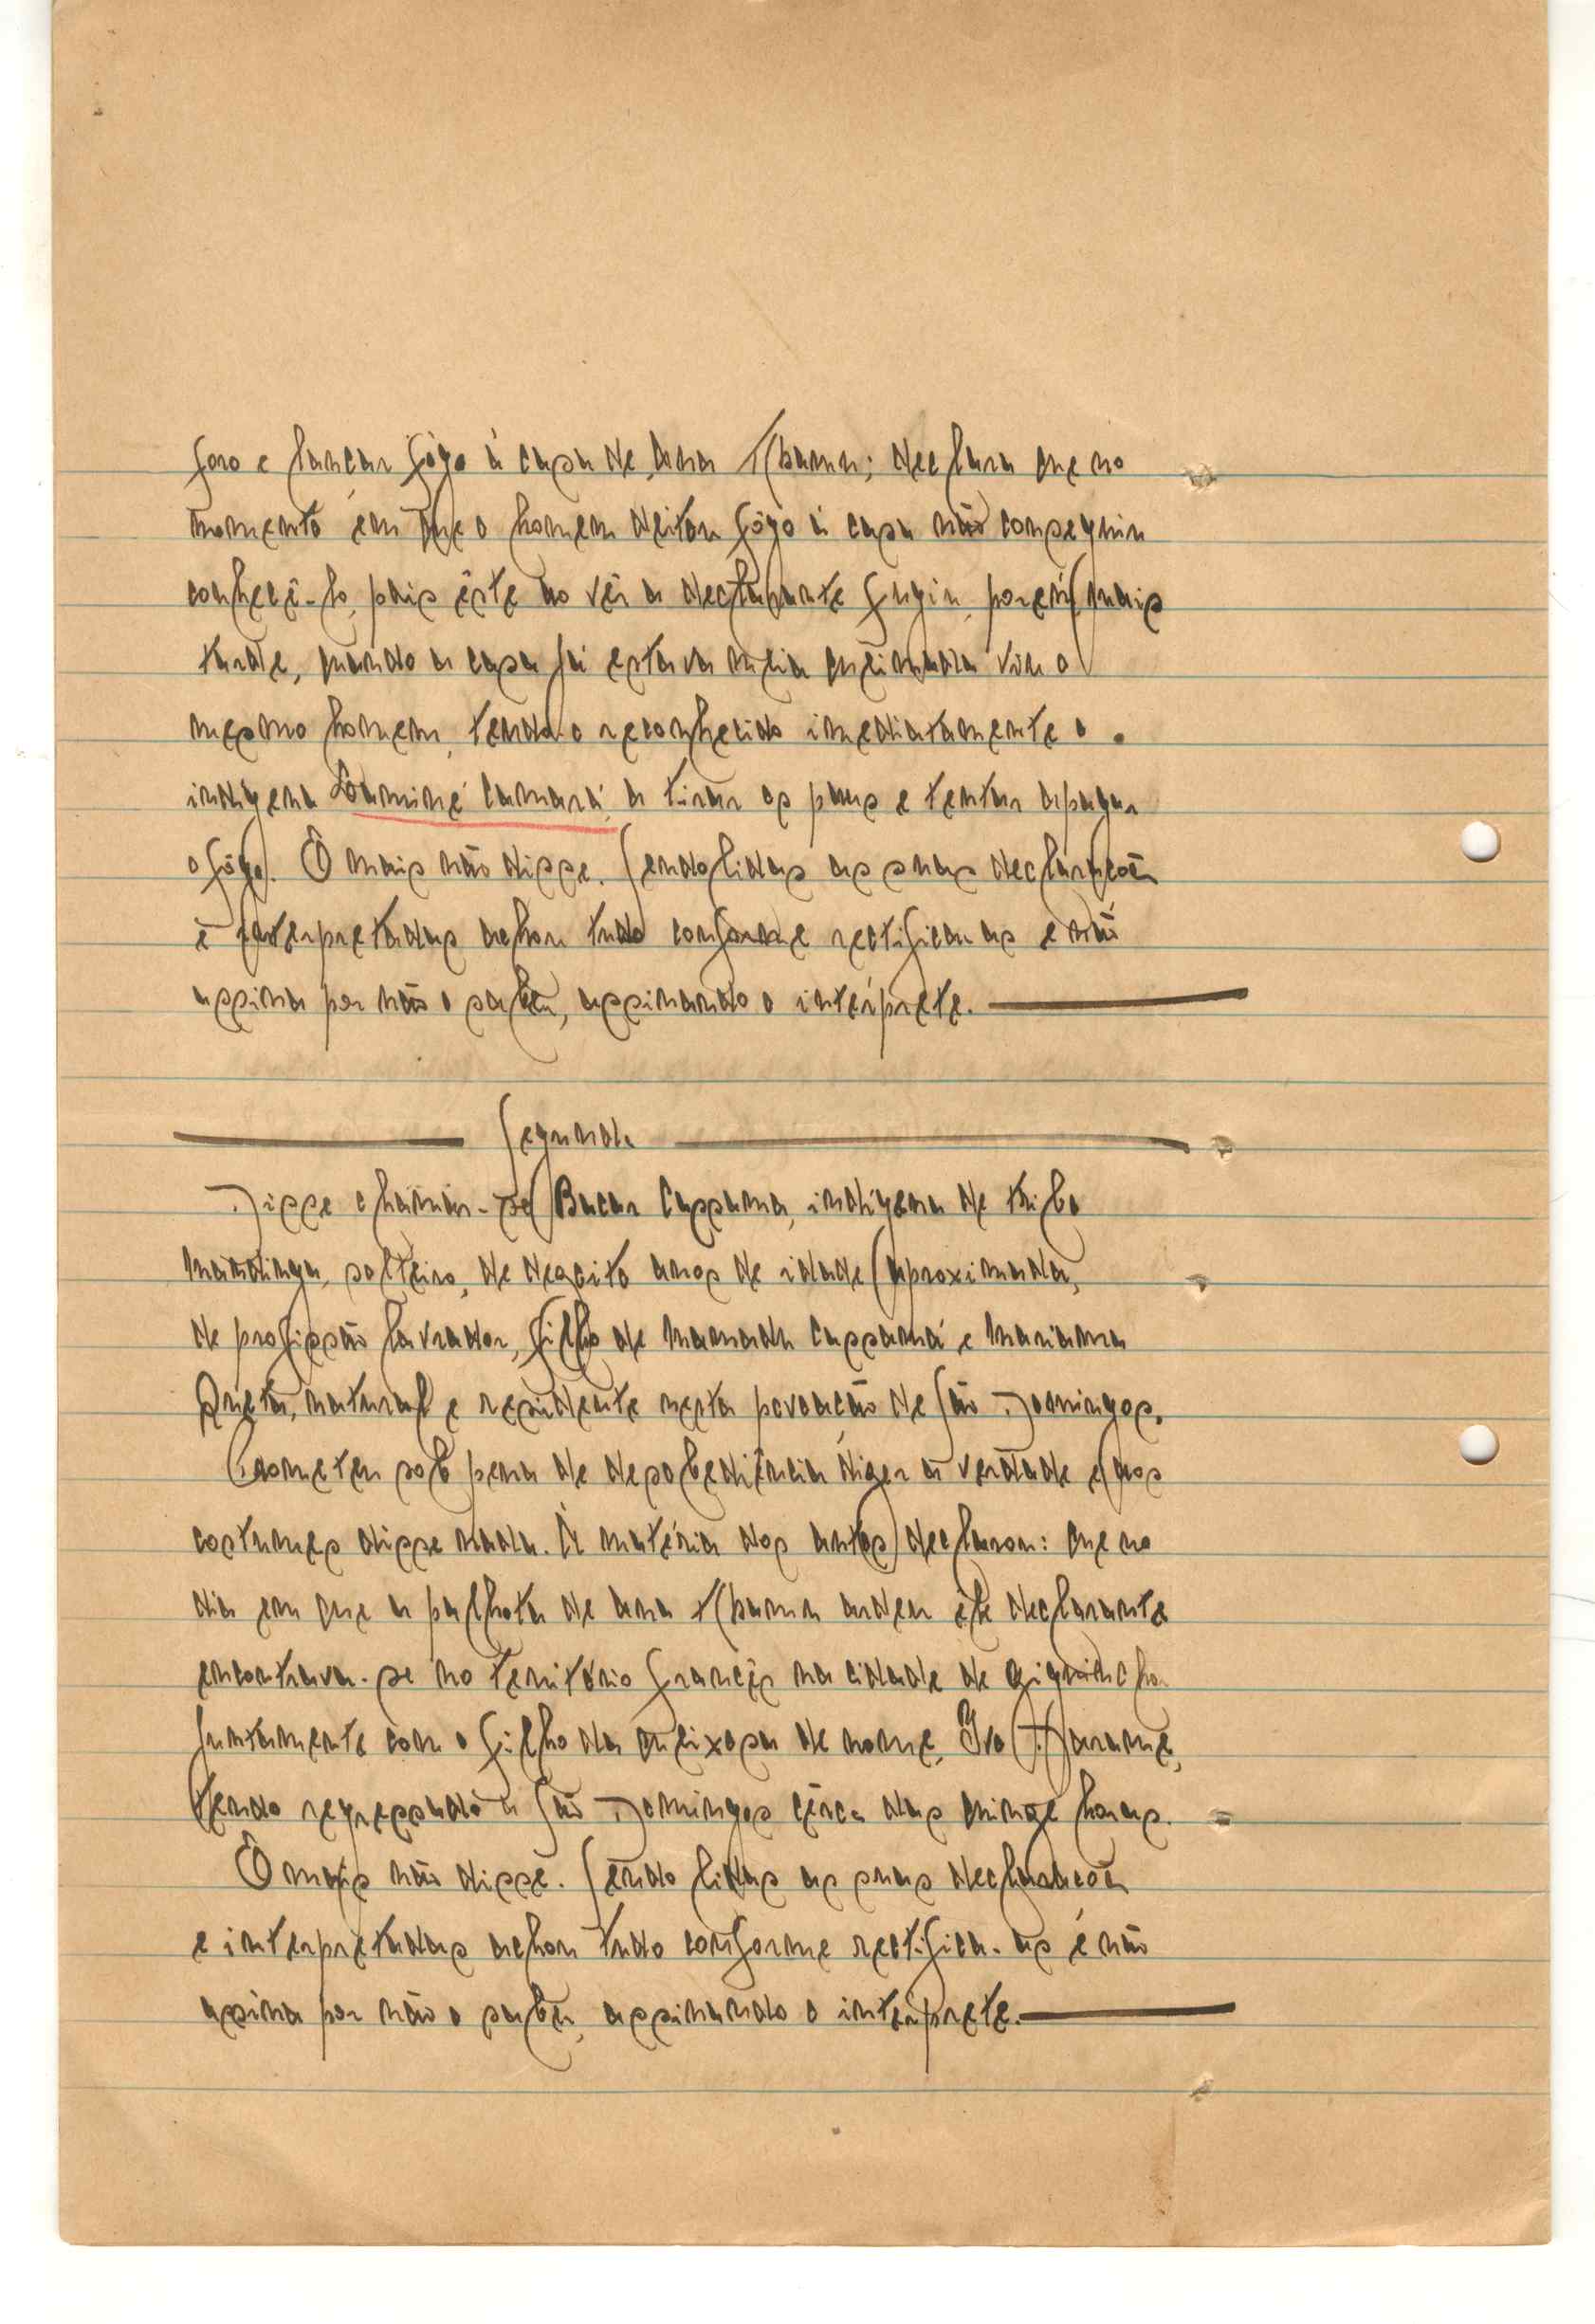 foro e lançar fôgo á casa de Ana Thama; declara que no
momento em que o homem deitou fôgo á casa não conseguiu
conhecê-lo, pois êste ao vêr a declarante fugiu, porém mais
tarde, quando a casa já estava meia queimada viu o
mesmo homem, tendo o reconhecido imediatamente o
indígena Laminé Camará, a tirar os paus e tentar apagar
o fôgo. E mais não disse. Sendo lidas as suas declarações
e interpretadas achou tudo conforme rectificou as e não
assina por não o saber, assinando o intérprete.
Segunda
Disse chamar-se Bacar Cassama, indígena de tribo
mandinga, solteiro, de dezoito anos de idade aproximada,
de profissão lavrador, filho de Mamadu Cassamá e Mariama
Queta, natural e residente nesta povoação de São Domingos.
Prometeu sob pena de desobediência dizer a verdade e aos
costumes disse nada. Á matéria dos autos declarou: que no
dia em que a palhota de Ana Thama ardeu êle declarante
encontrava-se no território francês na cidade de Ziguinchor
juntamente com o filho da queixosa de nome,
tendo regressado a São Domingos cêrca das quinze horas.
E mais não disse. Sendo lidas as suas declarações
e interpretadas achou tudo conforme rectifica-as e não
assina por não o saber, assinando o intérprete.